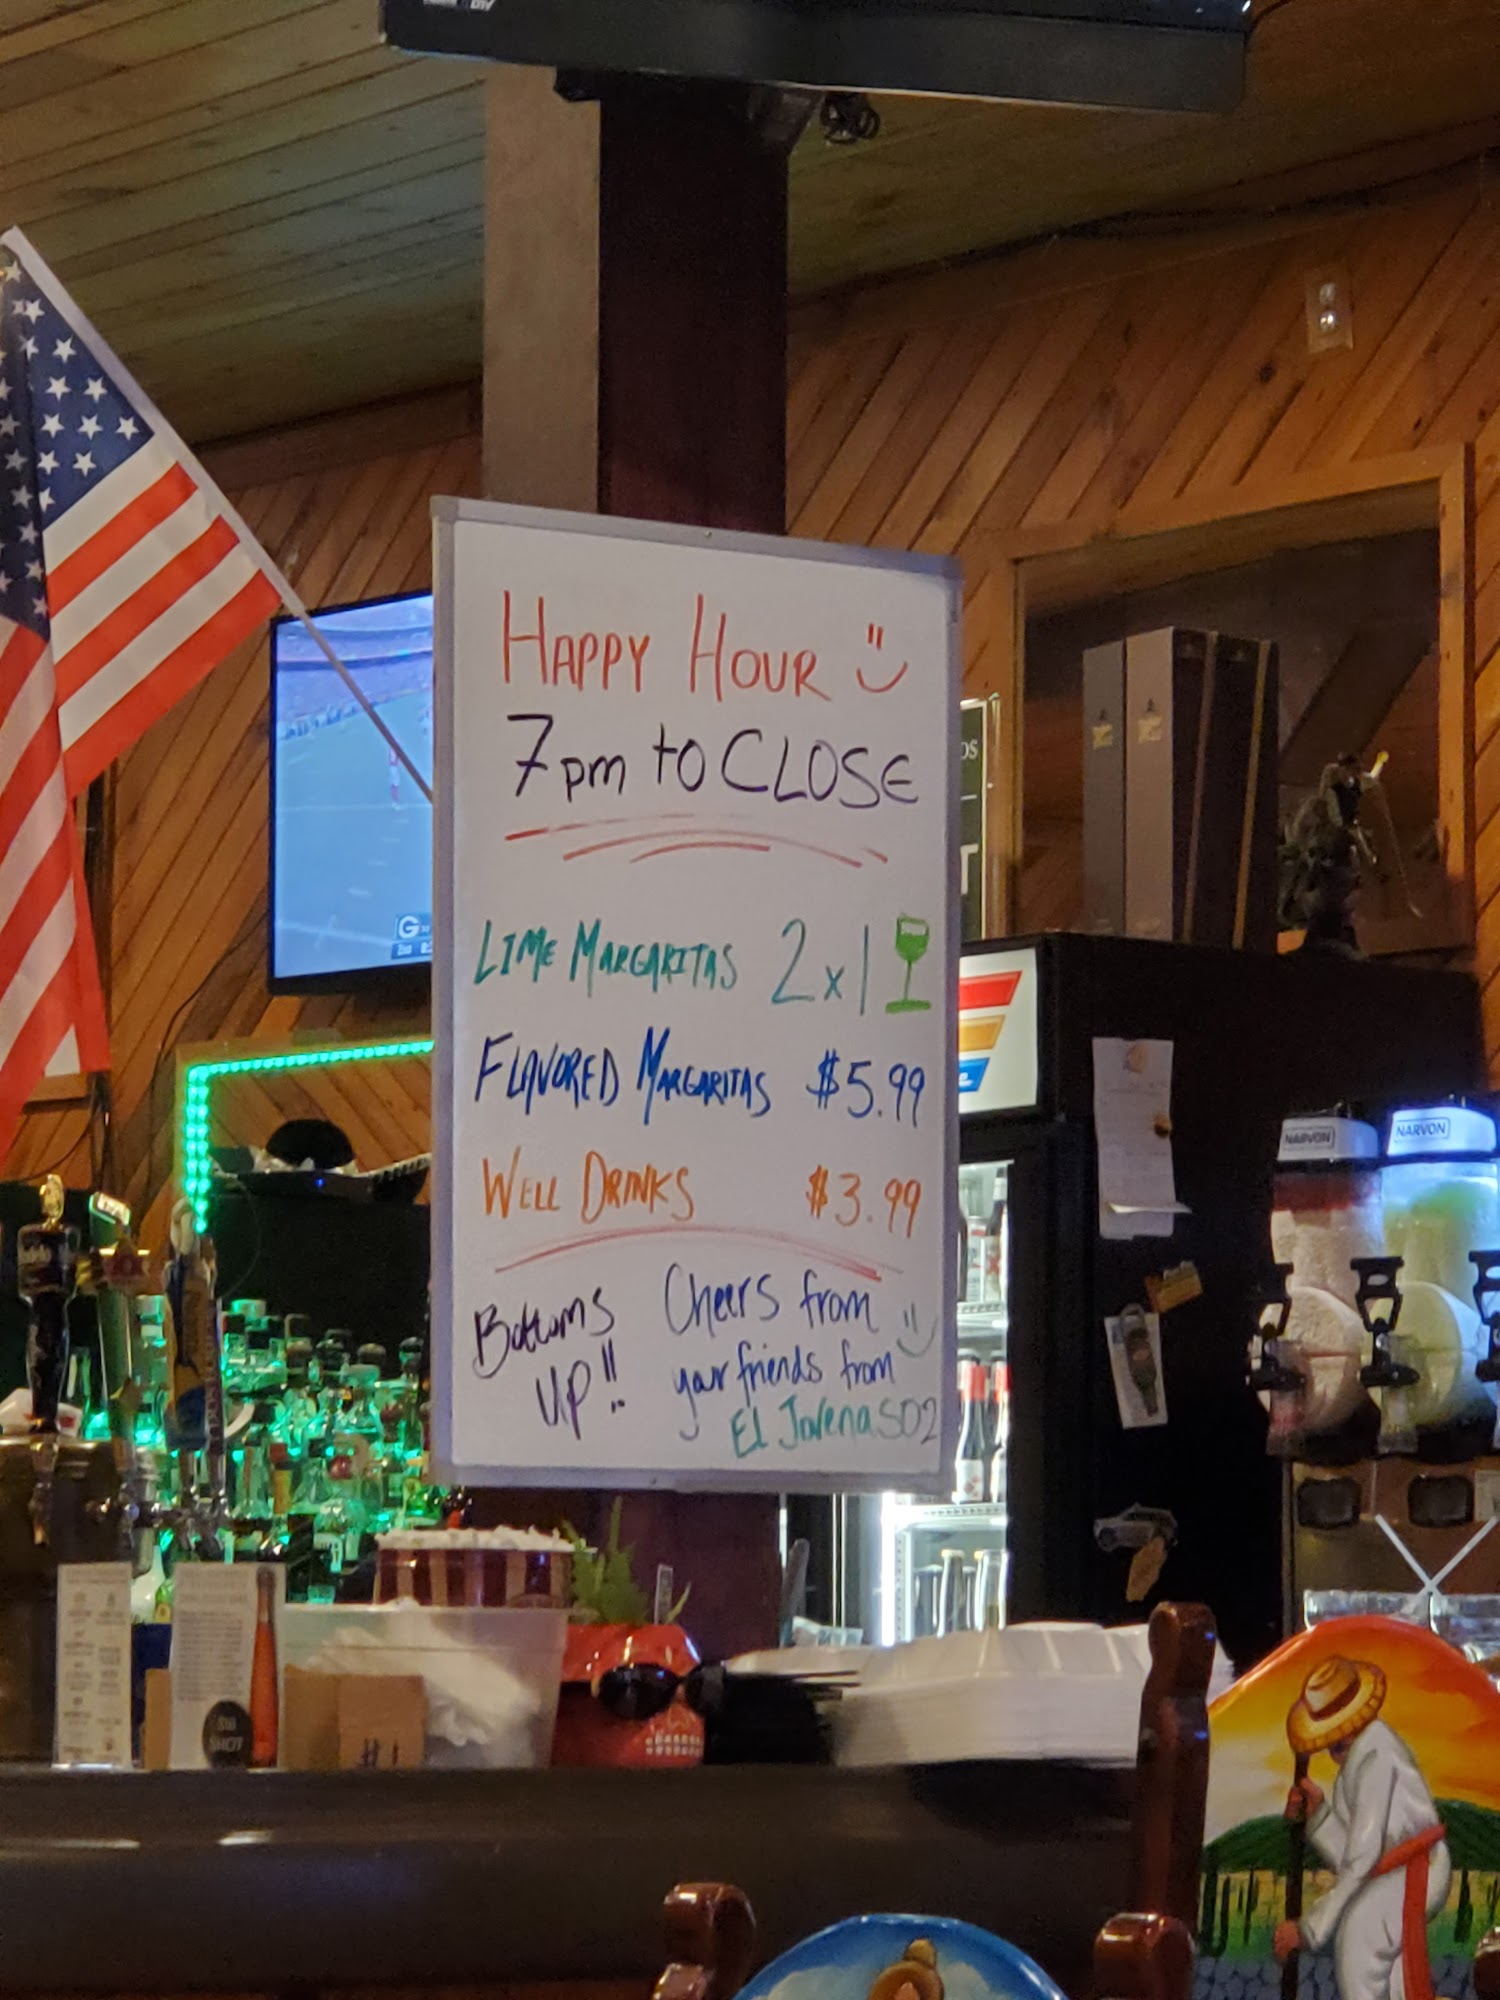 HAPPY HOUR
7pm to CLOSE
LIME MARGARITAS 2x1
FLAVORED MARGARITAS $5.99
WELL DRINKS $3.99
Bottoms
UP!!
Cheers from
your friends from
El Jarena SO2
NARVON
NARVON
G
SHOT
#1